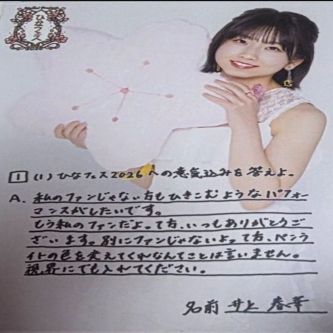 ひなフェス
1 (1)ひなフェス2026への意気込みを答えよ。
A. 私のファンじゃない方もひきこむようなパフォー
マンスがしたいです。
もう私のファンだよ。て方、いつもありがとうご
ざいます。別にファンじゃないよ。て方、ペンラ
イトの色を変えてくれなんてことは言いません。
視界にでも入れてください。
名前 井上 春華